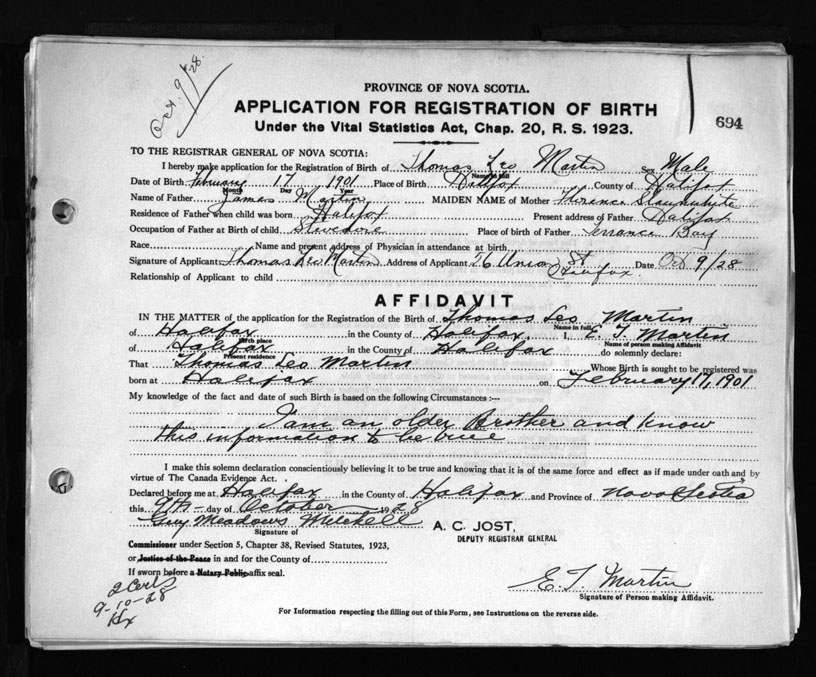 Oct. 9/28.
PROVINCE OF NOVA SCOTIA.
APPLICATION FOR REGISTRATION OF BIRTH
694
Under the Vital Statistics Act, Chap. 20, R. S. 1923.
TO THE REGISTRAR GENERAL OF NOVA SCOTIA:
I hereby make application for the Registration of Birth of Thomas Leo Martin Sex Male
Name in full
Date of Birth February 17 1901 Place of Birth Halifax County of Halifax
Month Day Year
Name of Father James Martin MAIDEN NAME of Mother Florence Slaunwhite
Residence of Father when child was born Halifax Present address of Father Halifax
Occupation of Father at Birth of child Stevedore Place of birth of Father Terrance Bay
Race Name and present address of Physician in attendance at birth
Signature of Applicant Thomas Leo Martin Address of Applicant 26 Union St Halifax Date Oct 9/28
Relationship of Applicant to child
AFFIDAVIT
IN THE MATTER of the application for the Registration of the Birth of Thomas Leo Martin
Name in full
of Halifax in the County of Halifax I, E. T. Martin
Birth place Name of person making Affidavit
of Halifax in the County of Halifax do solemnly declare:
Present residence
That Thomas Leo Martin Whose Birth is sought to be registered was
born at Halifax on February 17, 1901
My knowledge of the fact and date of such Birth is based on the following Circumstances :—
I am an older Brother and know
this information to be true
I make this solemn declaration conscientiously believing it to be true and knowing that it is of the same force and effect as if made under oath and by
virtue of The Canada Evidence Act.
Declared before me at Halifax in the County of Halifax and Province of Nova Scotia
this 9th day of October 1928
Guy Meadows Mitchell
Signature of
A. C. JOST,
DEPUTY REGISTRAR GENERAL
Commissioner under Section 5, Chapter 38, Revised Statutes, 1923,
or Justice of the Peace in and for the County of
If sworn before a Notary Public affix seal.
2 Certs
9-10-28
Hx
E. T. Martin
Signature of Person making Affidavit.
For Information respecting the filling out of this Form, see Instructions on the reverse side.